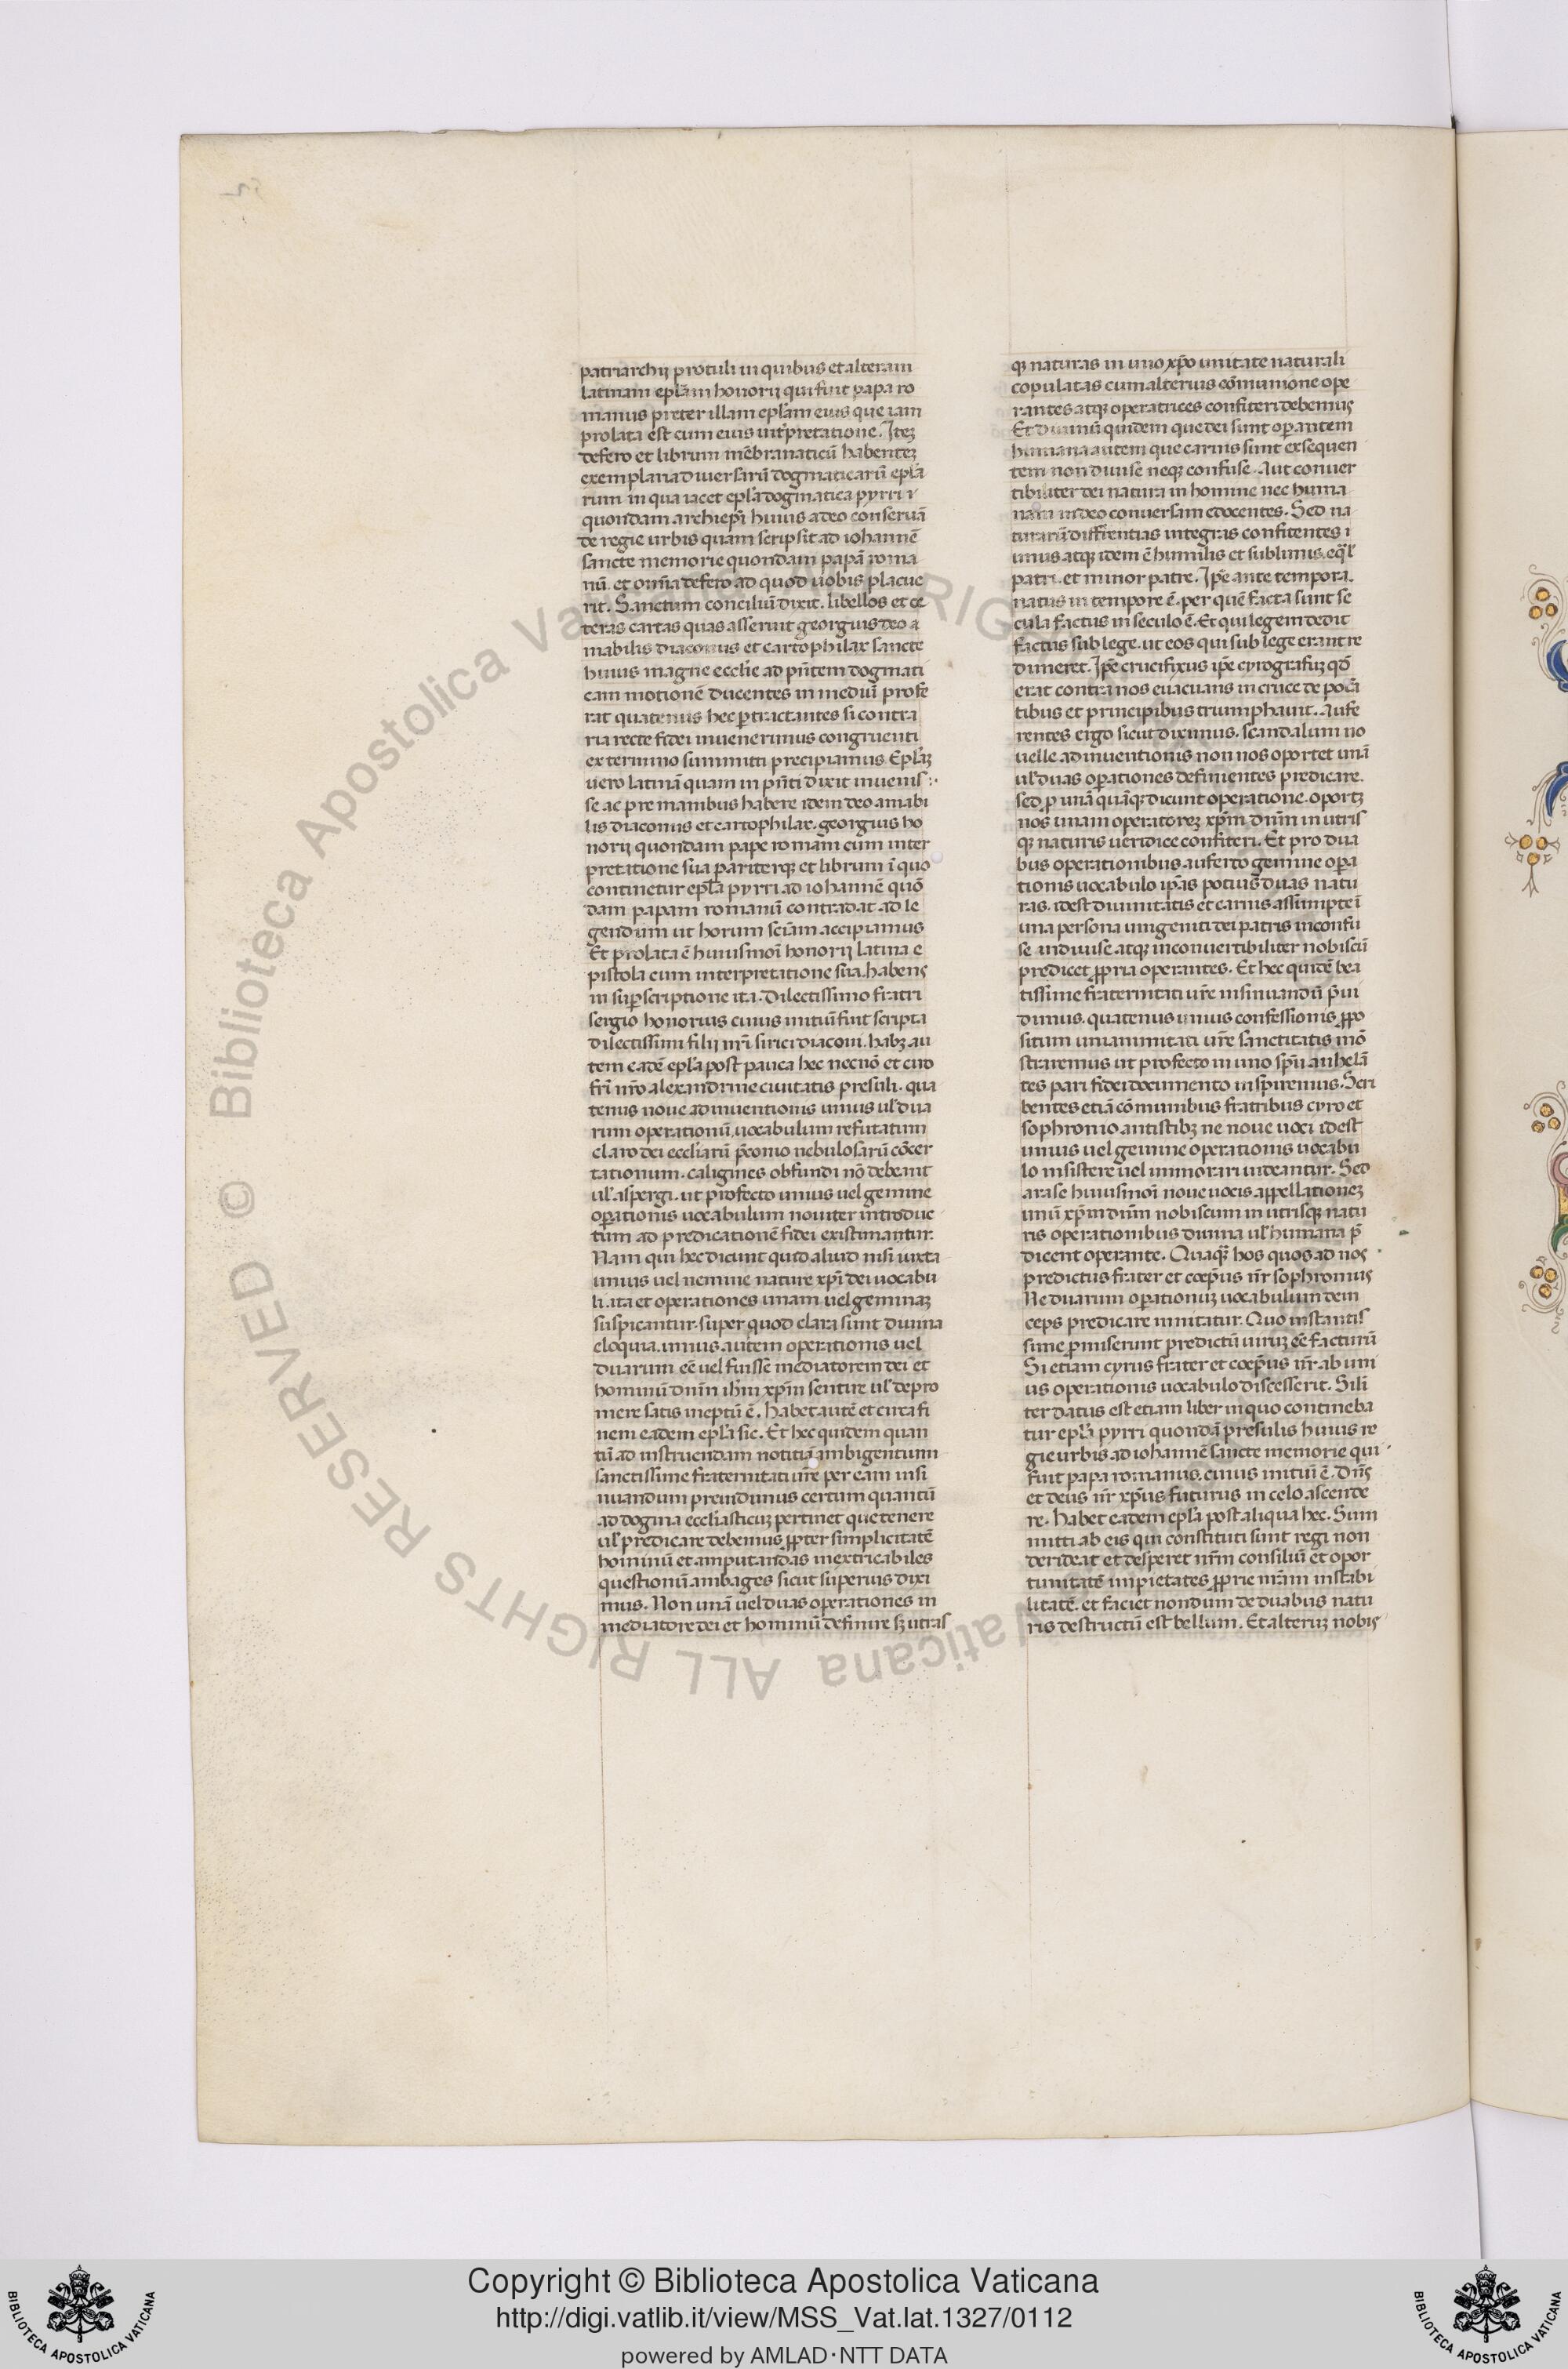 patriarchij protuli in quibus et alteram
latinam epl̄am honorij qui fuit papa ro
manus preter illam epl̄am eius que iam
prolata est cum eius int̄pretatione. Iteꝫ
defero et librum mēbranaticū habenteꝫ
exemplaria diuersarū dogmaticarū epl̄a
rum in qua iacet epl̄a dogmatica pyrri ī
quondam archiepī huius a deo conseruā
de regie urbis quam scripsit ad iohannē
sancte memorie quondam papā roma
nū. et om̄ia defero ad quod uobis placue
rit. Sanctum conciliū dixit. libellos et ce
teras cartas quas asseruit georgius deo a
mabilis diaconus et cartophilax sancte
huius magne eccl̄ie ad pn̄tem dogmati
cam motionē ducentes in mediū profe
rat quatenus hec ꝑtractantes si contra
ria recte fidei inuenerimus congruenti
ex termino summitti precipiamus. Epl̄aꝫ
uero latinā quam in pn̄ti dixit inuenis
se ac pre manibus habere idem deo amabi
lis diaconus et cartophilax. georgius ho
norij quondam pape romani cum inter
pretatione sua pariterqꝫ et librum ī quo
continetur epl̄a pyrri ad iohannē quō
dam papam romanū contradat ad le
gendum ut horum sciām accipiamus
Et prolata ē huiusmoī honorij latina e
pistola cum interpretatione sua. habens
in suꝑscriptione ita. Dilectissimo fratri
sergio honorius cuius initiū fuit scripta
dilectissimi filij nr̄i sirici diaconi. habꝫ au
tem eadē epl̄a post pauca hec necnō et ciro
fr̄i nr̄o alexandrine ciuitatis presuli. qua
tenus noue adinuentionis unius ul̄ dua
rum operationū, uocabulum refutatum
claro dei eccl̄iarū p̄conio nebulosarū cōcer
tationum. caligines obfundi nō debeant
ul̄ aspergi. ut profecto unius uel gemine
oꝑationis uocabulum nouiter introduc
tum ad predicationē fidei existimantur.
Nam qui hec dicunt quid aliud nisi iuxta
unius uel nemine nature xp̄i dei uocabu
li. ita et operationes unam uel geminaꝫ
suspicantur. super quod clara sunt diuina
eloquia. unius autem operationis uel
duarum eē uel fuissē mediatorem dei et
hominū dn̄m ih̄m xp̄m sentire ul̄ depro
mere satis ineptū ē. habet autē et circa fi
nem eadem epl̄a sic. Et hec quidem quan
tū ad instruendam notitiā ambigentium
sanctissime fraternitati ur̄e per eam insi
nuandum preuidimus certum quantū
ad dogma eccl̄iasticuꝫ pertinet que tenere
ul̄ predicare debemus ꝓpter simplicitatē
hominū et amputandas inextricabiles
questionū ambages sicut superius dixi
mus. Non unā uel duas operationes in
mediatore dei et hominū definire sꝫ utras
qꝫ naturas in uno xp̄o unitate naturali
copulatas cum alterius cōmunione ope
rantes atqꝫ operatrices confiteri debemus
Et diuinū quidem que dei sunt oꝑantem
humana autem que carnis sunt exsequen
tem non diuise neqꝫ confuse. Aut conuer
tibiliter dei natura in homine nec huma
nam in deo conuersam edocentes. Sed na
turarū diffr̄entias integras confitentes ī
unus atqꝫ idem ē humilis et sublimis. eq̄l̄
patri. et minor patre. Ip̄e ante tempora.
natus in tempore ē. per quē facta sunt se
cula factus in seculo ē. Et qui legem dedit
factus sub lege. ut eos qui sub lege erant re
dimeret. Ip̄e crucifixus ip̄e cyrografuꝫ qd̄
erat contra nos euacuans in cruce de potā
tibus et principibus triumphauit. Aufe
rentes ergo sicut diximus. scandalum no
uelle adinuentionis non nos oportet unā
ul̄ duas oꝑationes definientes predicare.
sed ꝓ unā quāqꝫ dicunt operatione. oportꝫ
nos unam operatoreꝫ xp̄m dn̄m in utris
qꝫ naturis ueridice confiteri. Et pro dua
bus operationibus auferto gemine oꝑa
tionis uocabulo ip̄as potius duas natu
ras. idest diuinitatis et carnis assumpte ī
una persona unigeniti dei patris inconfu
se indiuise. atqꝫ inconuertibiliter nobiscū
predicet ꝓpria operantes. Et hec quidē bea
tissime fraternitati ur̄e insinuandū p̄ui
dimus. quatenus unius confessionis ꝓpo
situm unanimitati ur̄e sanctitatis mō
straremus ut profecto in uno spū anhelā
tes pari fidei documento inspiremus. Scri
bentes etiā cōmunibus fratribus cyro et
sophronio antistibꝫ ne noue uoci idest
unius uel gemine operationis uocabu
lo insistere uel immorari uideantur. Sed
arase huiusmoī noue uocis appellationeꝫ
unū xp̄m dn̄m nobiscum in utrisqꝫ natu
ris operationibus diuina ul̄ humana p̄
dicent operante. Quaqꝫ hos quos ad nos
predictus frater et coep̄us nr̄ sophronius
Ne duarum oꝑationuꝫ uocabulum dein
ceps predicare innitatur. Quo instantis
sime ꝓmiserunt predictū uiruꝫ eē facturū
Si etiam cyrus frater et coep̄us nr̄ ab uni
us operationis uocabulo discesserit. Sili
ter datus est etiam liber in quo contineba
tur epl̄a pyrri quondā presulis huius re
gie urbis ad iohannē sancte memorie qui
fuit papa romanus. cuius initiū ē. Dn̄s
et deus nr̄ xp̄us futurus in celo ascende
re. habet eadem epl̄a post aliqua hec. Sum
mitti ab eis qui constituti sunt regi non
derideat et desperet nr̄m consiliū et opor
tunitatē impietates ꝓprie nr̄am instabi
litatē. et faciet nondum de duabus natu
ris destructū est bellum. Et alteruꝫ nobis
Copyright © Biblioteca Apostolica Vaticana
http://digi.vatlib.it/view/MSS_Vat.lat.1327/0112
powered by AMLAD·NTT DATA